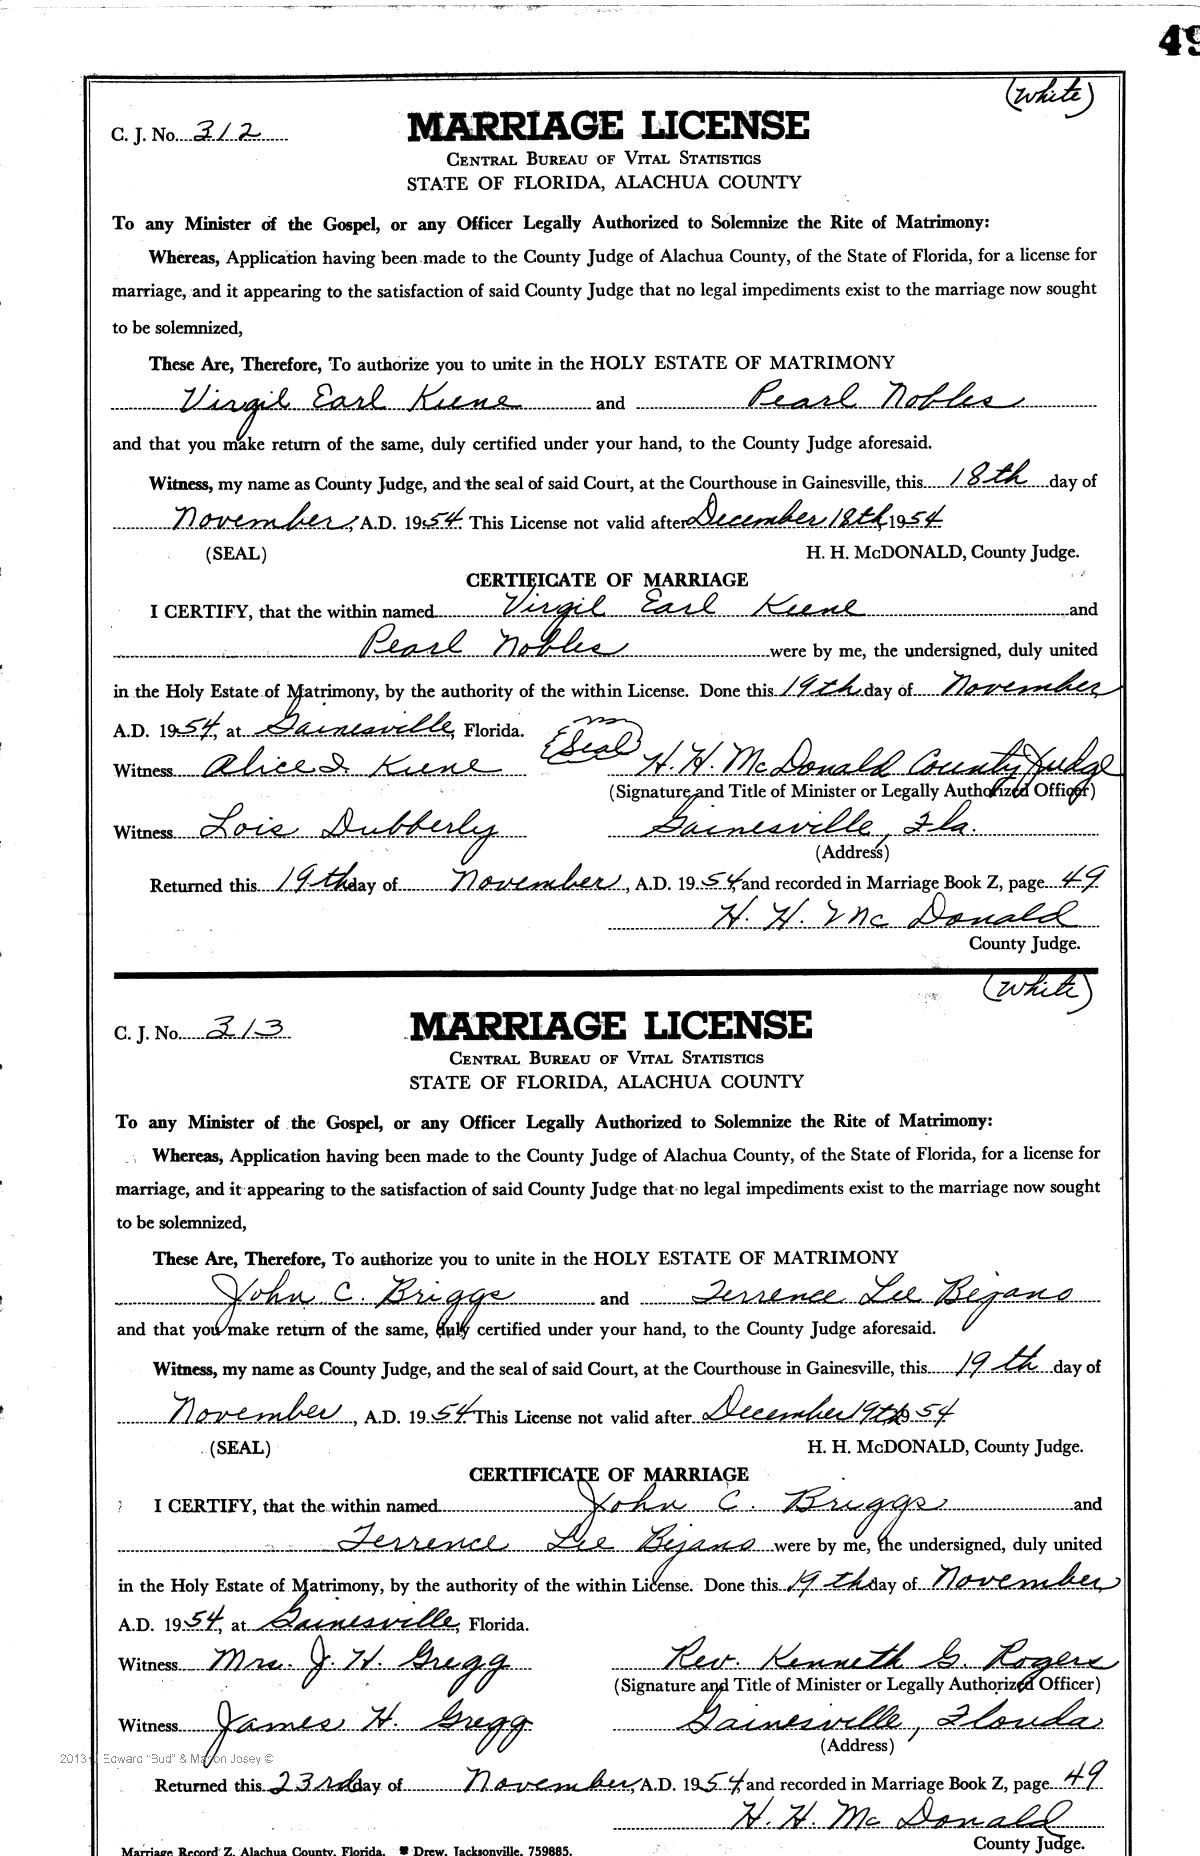 49
(White)
C. J. No. 312 MARRIAGE LICENSE
CENTRAL BUREAU OF VITAL STATISTICS
STATE OF FLORIDA, ALACHUA COUNTY
To any Minister of the Gospel, or any Officer Legally Authorized to Solemnize the Rite of Matrimony:
Whereas, Application having been made to the County Judge of Alachua County, of the State of Florida, for a license for
marriage, and it appearing to the satisfaction of said County Judge that no legal impediments exist to the marriage now sought
to be solemnized,
These Are, Therefore, To authorize you to unite in the HOLY ESTATE OF MATRIMONY
Virgil Earl Kiene and Pearl Nobles
and that you make return of the same, duly certified under your hand, to the County Judge aforesaid.
Witness, my name as County Judge, and the seal of said Court, at the Courthouse in Gainesville, this 18th day of
November, A.D. 1954 This License not valid after December 18th, 1954
(SEAL) H. H. McDONALD, County Judge.
CERTIFICATE OF MARRIAGE
I CERTIFY, that the within named Virgil Earl Kiene and
Pearl Nobles were by me, the undersigned, duly united
in the Holy Estate of Matrimony, by the authority of the within License. Done this 19th day of November,
A.D. 1954, at Gainesville, Florida.
(Seal)
Witness Alice I. Kiene H. H. McDonald County Judge
(Signature and Title of Minister or Legally Authorized Officer)
Witness Lois Dubberly Gainesville, Fla.
(Address)
Returned this 19th day of November, A.D. 1954, and recorded in Marriage Book Z, page 49
H. H. McDonald
County Judge.
(White)
C. J. No. 313 MARRIAGE LICENSE
CENTRAL BUREAU OF VITAL STATISTICS
STATE OF FLORIDA, ALACHUA COUNTY
To any Minister of the Gospel, or any Officer Legally Authorized to Solemnize the Rite of Matrimony:
Whereas, Application having been made to the County Judge of Alachua County, of the State of Florida, for a license for
marriage, and it appearing to the satisfaction of said County Judge that no legal impediments exist to the marriage now sought
to be solemnized,
These Are, Therefore, To authorize you to unite in the HOLY ESTATE OF MATRIMONY
John C. Briggs and Terrence Lee Bejano
and that you make return of the same, duly certified under your hand, to the County Judge aforesaid.
Witness, my name as County Judge, and the seal of said Court, at the Courthouse in Gainesville, this 19th day of
November, A.D. 1954 This License not valid after December 19th 1954
(SEAL) H. H. McDONALD, County Judge.
CERTIFICATE OF MARRIAGE
I CERTIFY, that the within named John C. Briggs and
Terrence Lee Bejano were by me, the undersigned, duly united
in the Holy Estate of Matrimony, by the authority of the within License. Done this 19th day of November,
A.D. 1954, at Gainesville, Florida.
Witness Mrs. J. H. Gregg Rev. Kenneth G. Rogers
(Signature and Title of Minister or Legally Authorized Officer)
Witness James H. Gregg Gainesville, Florida
(Address)
2013 Edward "Bud" & Marion Josey ©
Returned this 23rd day of November, A.D. 1954, and recorded in Marriage Book Z, page 49
H. H. McDonald
County Judge.
Marriage Record Z, Alachua County, Florida. Drew, Jacksonville, 759885.